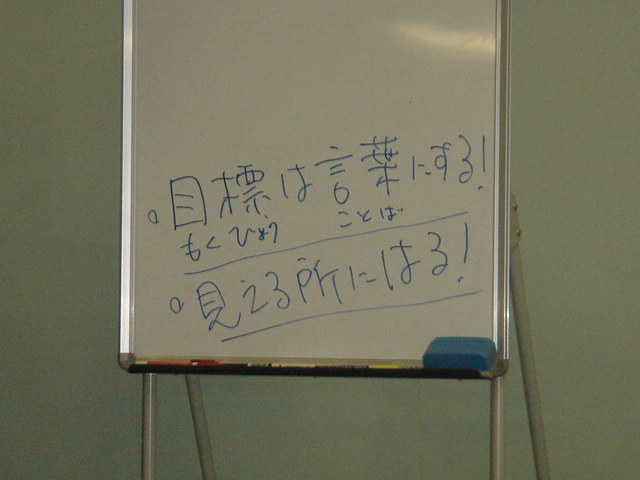 ○目標は言葉にする!
もくひょう ことば
○見える所にはる!